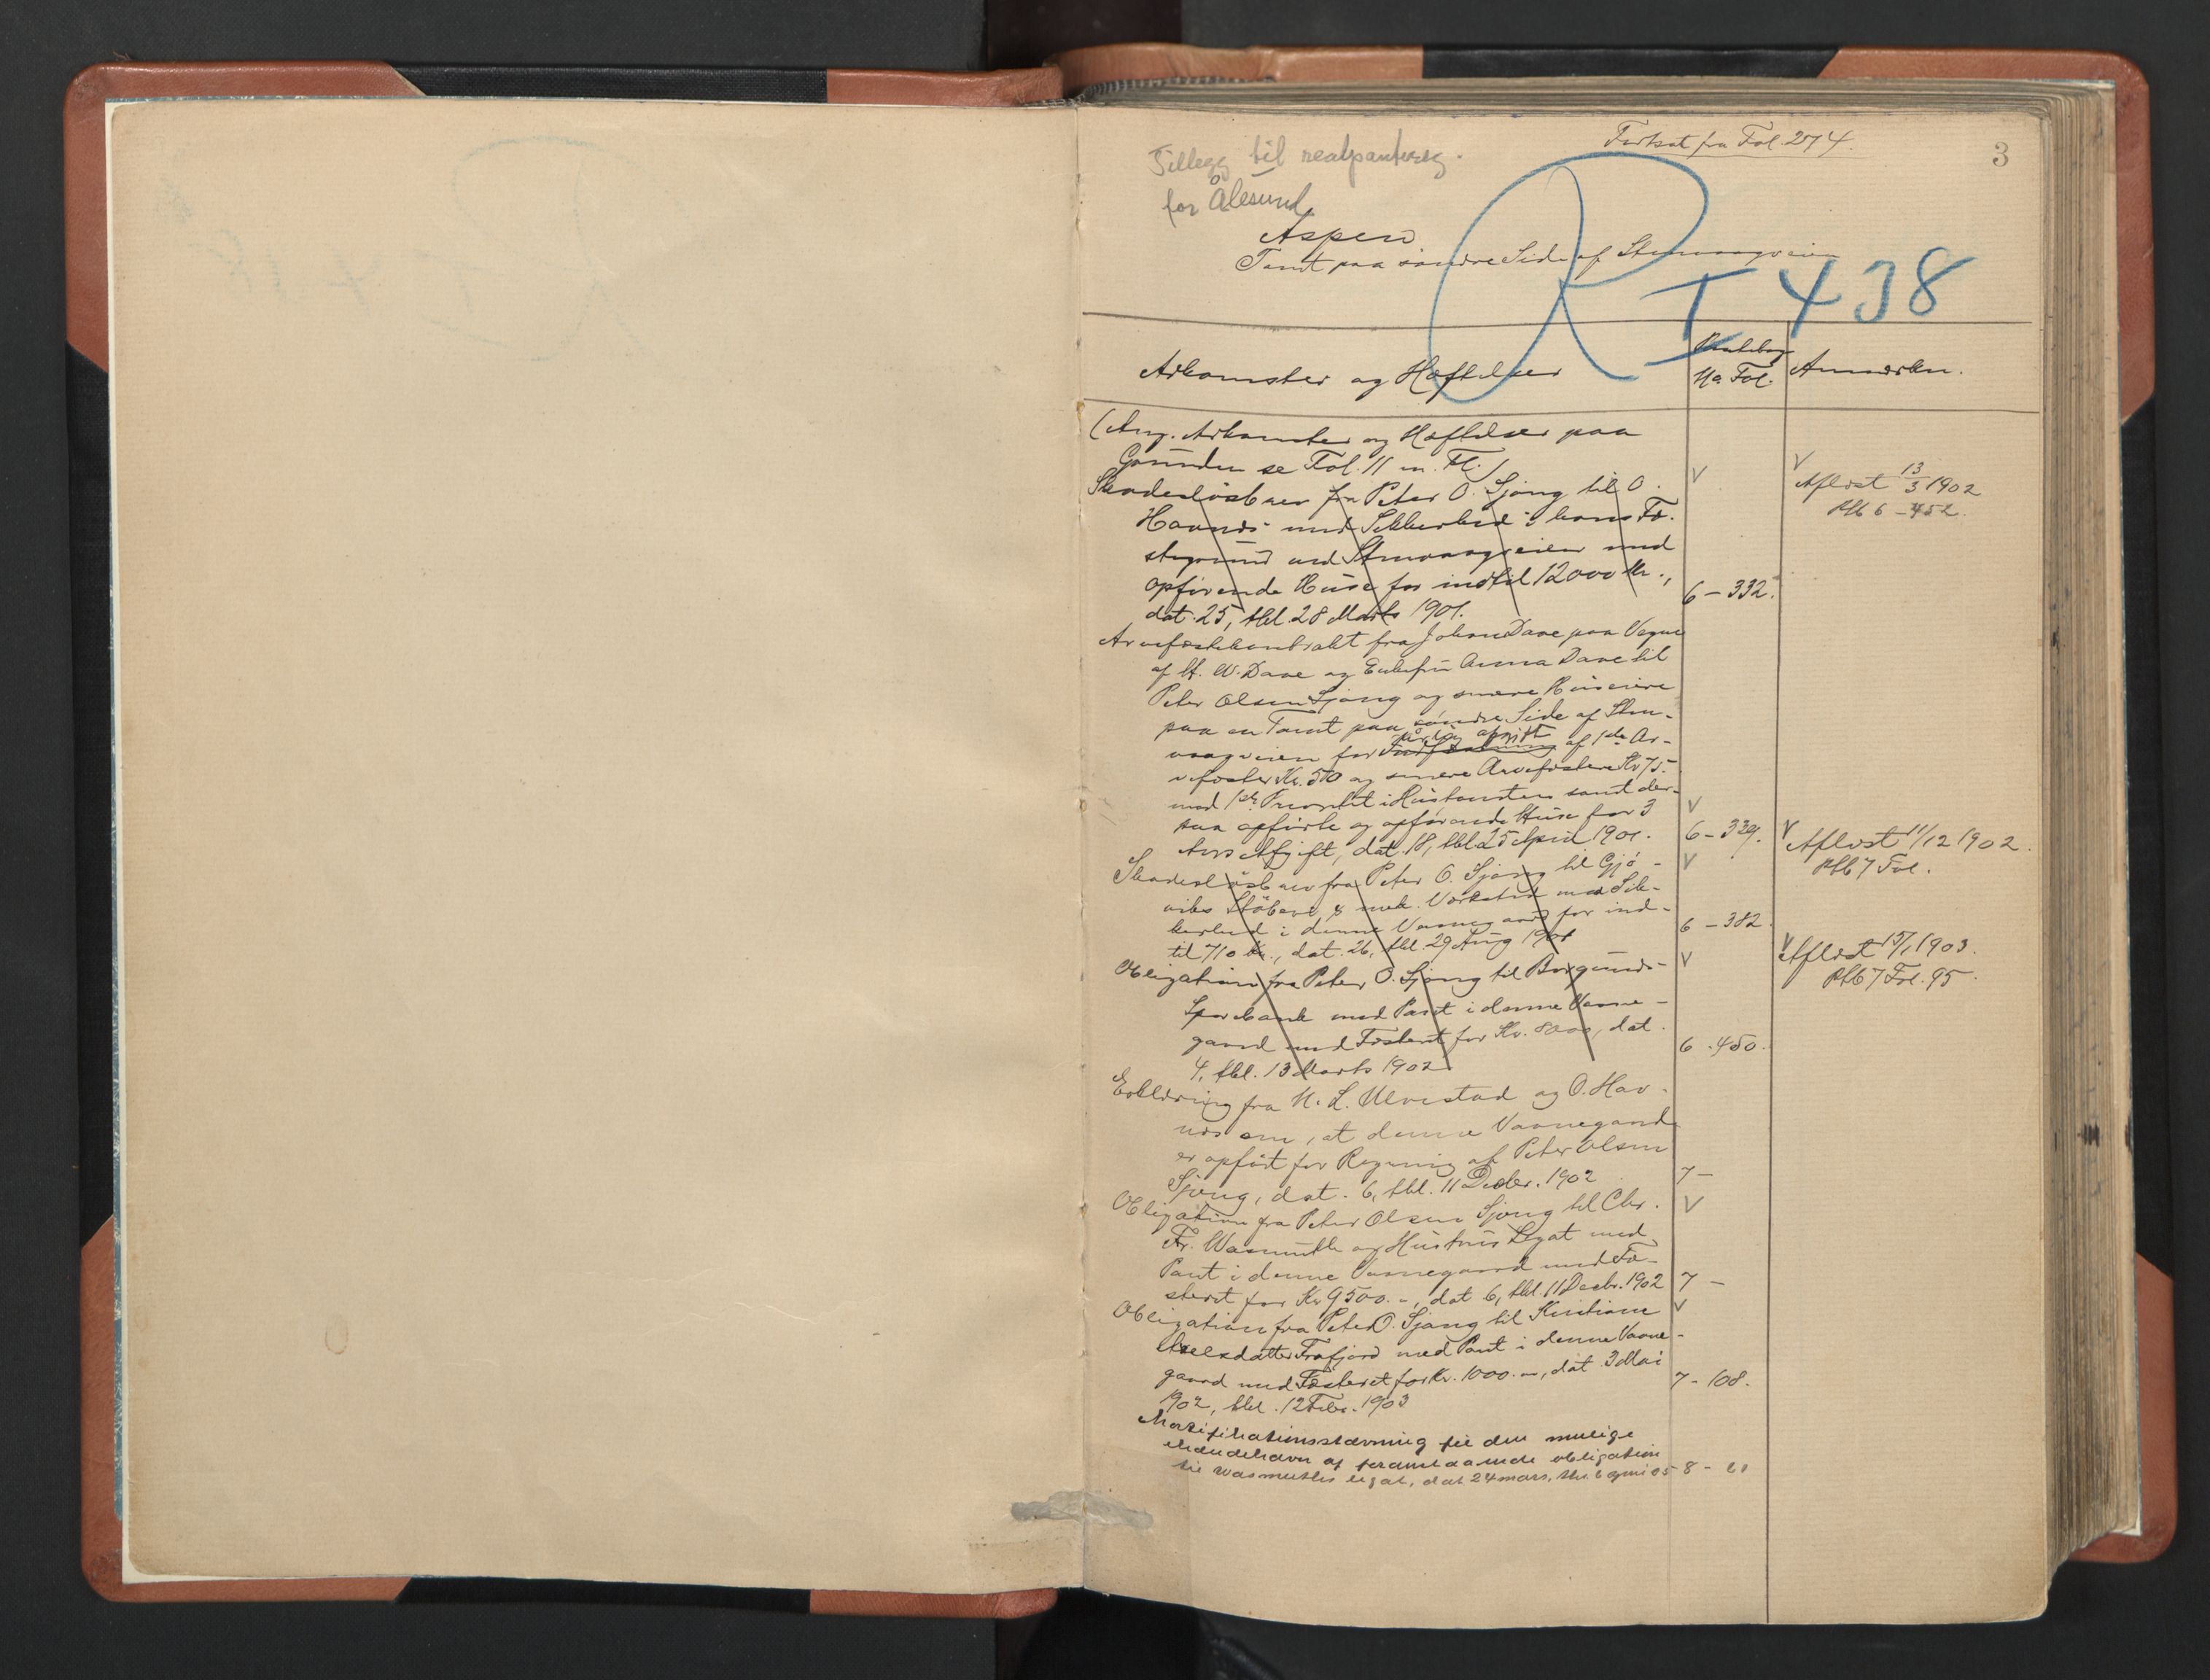 Fortsat fra Fol. 274.
3
Tillegg til realpantereg.
for Ålesund
Aspen
Tomt paa søndre Side af Stenvaagveien
R I 438
Adkomster og Hæftelser
Pantebog
No. Fol.
Anmærkn.
(Ang. Adkomster og Hæftelser paa
Grunden se Fol. 11 m. Fl.)
Skadesløsbrev fra Peter O. Sjong til O.
Havnæs med Sikkerhed i hans Fæ-
stegrund ved Stenvaagveien med
opførende Huse for indtil 12000 Kr.,
dat. 25, thl. 28 Marts 1901.
6 - 332.
Aflæst 13/3 1902
Ptb 6 - 452.
Arvefæstekontrakt fra Johan Daae paa Vegne
af H. W. Daae og Enkefru Anna Daae til
Peter Olsen Sjong og senere Huseiere
paa en Tomt paa søndre Side af Sten-
vaagveien for årlig afgift af 1ste Ar-
vefæster Kr. 50 og senere Arvefæstere Kr 75.
med 1ste Prioritet i Hustomten samt der-
paa opførte og opførende Huse for 3
Aars Afgift, dat. 18, thl 25 April 1901.
6 - 339.
Skadesløsbrev fra Peter O. Sjong til Gjø-
viks Støberi & mek. Værksted med Sik-
kerhed i denne Vaanegaard for ind-
til 710 Kr., dat. 26, thl. 29 Aug 1901
6 - 382.
Aflæst 11/12 1902.
Ptb 7 Fol.
Obligation fra Peter O. Sjong til Borgunds
Sparebank med Pant i denne Vaane-
gaard med Fæsteret for Kr. 8000, dat.
4, thl. 13 Marts 1902.
6 - 450.
Aflæst 15/1 1903.
Ptb 7 Fol. 95.
Erklæring fra N. L. Ulvestad og O. Hav-
næs om, at denne Vaanegaard
er opført for Regning af Peter Olsen
Sjong, dat. 6, thl. 11 Decbr. 1902
7 -
Obligation fra Peter Olsen Sjong til Chr.
Fr. Wasmuth og Hustrus Legat med
Pant i denne Vaanegaard med Fæ-
steret for Kr 9500.-, dat 6, thl. 11 Decbr. 1902
7 -
Obligation fra Peter O. Sjong til Kristiane
Axelsdatter Frafjord med Pant i denne Vaane-
gaard med Fæsteret for Kr. 1000.-, dat. 3 Mai
1902, thl. 12 Febr. 1903
7 - 108.
Mortifikationsstævning til den mulige
ihændehaver af foranstaaende obligation
til Wasmuths legat, dat 24 mars, thl. 6 april 05
8 -